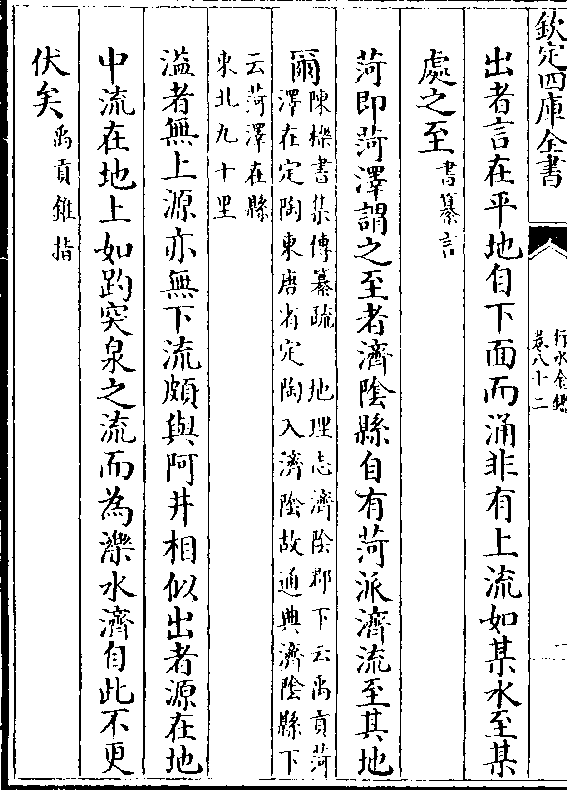 欽定四庫全書
行水金鑑
卷八十二
出者言在平地自下面而涌非有上流如某水至某
處之至書纂言
菏即菏澤謂之至者濟陰縣自有菏派濟流至其地
爾陳櫟書集傳纂疏　地理志濟陰郡下云禹貢菏
澤在定陶東唐省定陶入濟陰故通典濟陰縣下
云菏澤在縣
東北九十里
溢者無上源亦無下流頗與阿井相似出者源在地
中流在地上如趵突泉之流而為濼水濟自此不更
伏矣禹貢錐指